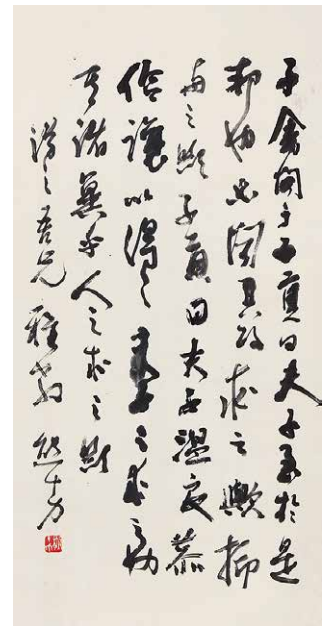 子禽問于子貢曰夫子至於是
邦也必聞其政求之歟抑
與之歟子貢曰夫子溫良恭
儉讓以得之夫子之求之也
其諸異乎人之求之歟
之吾兄雅教 熊十力